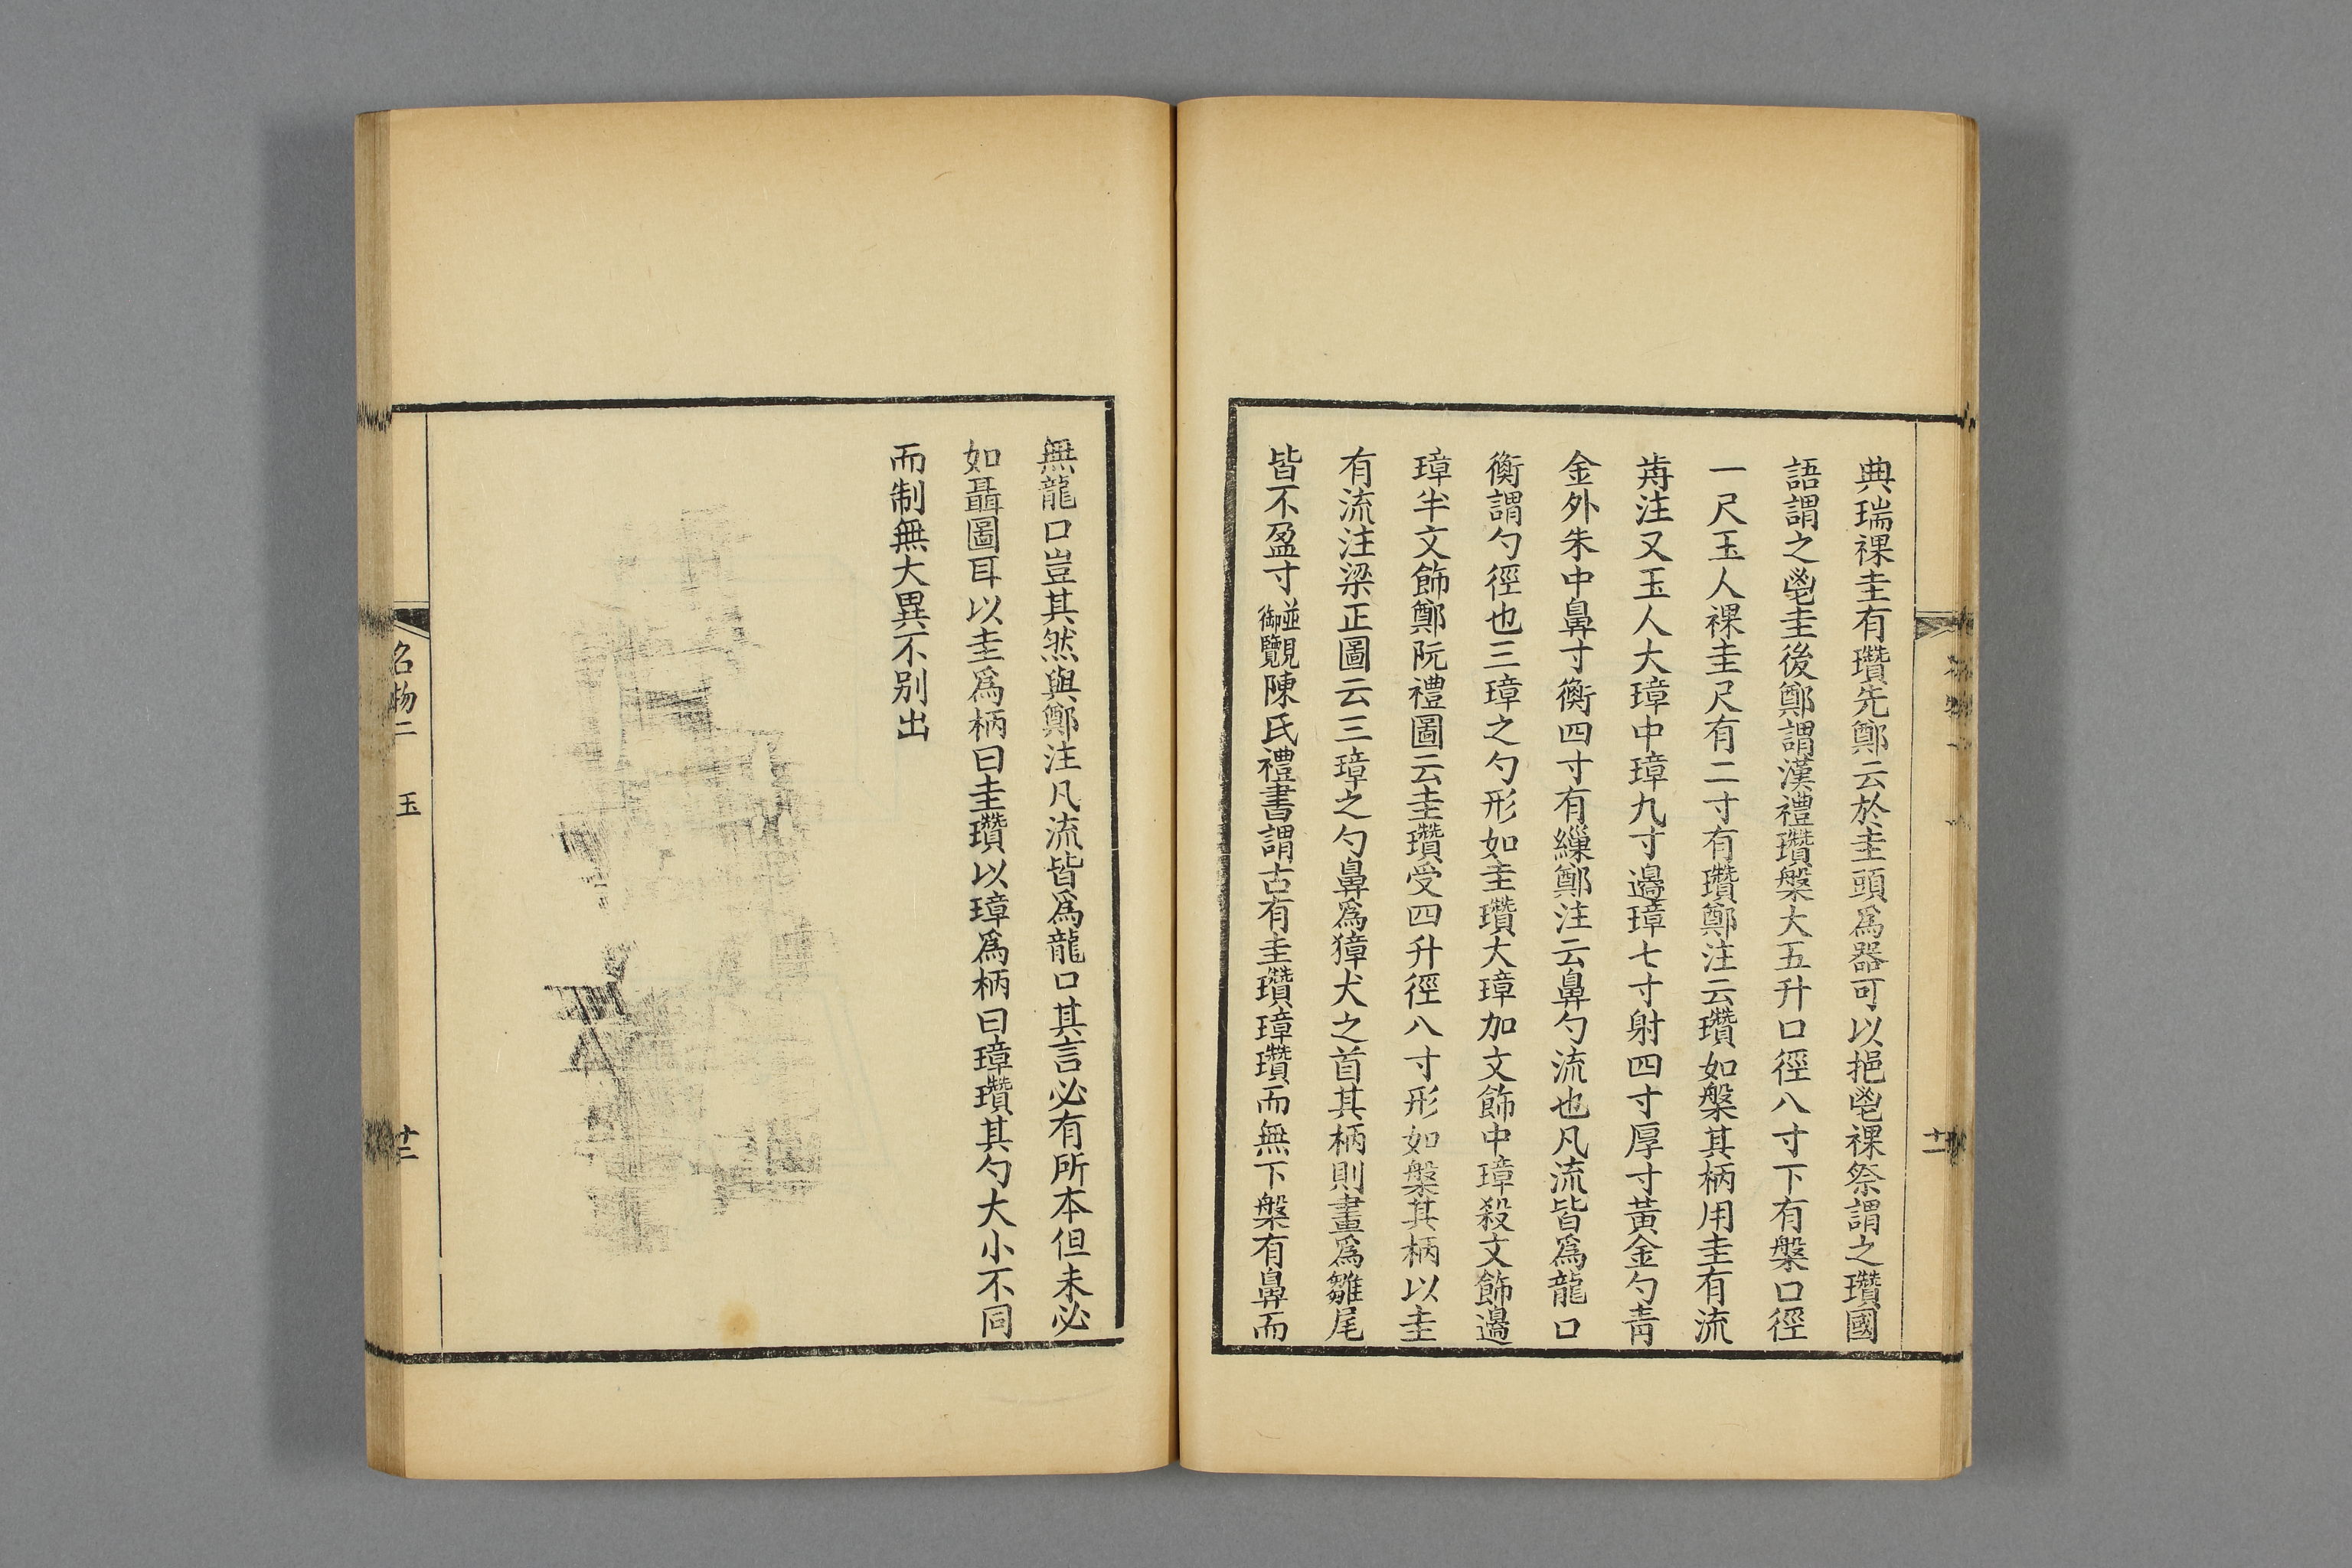 典瑞祼圭有瓚先鄭云於圭頭爲器可以挹鬯祼祭謂之瓚國
語謂之鬯圭後鄭謂漢禮瓚槃大五升口徑八寸下有槃口徑
一尺玉人祼圭尺有二寸有瓚鄭注云瓚如槃其柄用圭有流
歬注又玉人大璋中璋九寸邊璋七寸射四寸厚寸黃金勺靑
金外朱中鼻寸衡四寸有繅鄭注云鼻勺流也凡流皆爲龍口
衡謂勺徑也三璋之勺形如圭瓚大璋加文飾中璋殺文飾邊
璋半文飾鄭阮禮圖云圭瓚受四升徑八寸形如槃其柄以圭
有流注梁正圖云三璋之勺鼻爲獐犬之首其柄則畫爲雛尾
皆不盈寸竝御覽陳氏禮書謂古有圭瓚璋瓚而無下槃有鼻而
十二
無龍口豈其然與鄭注凡流皆爲龍口其言必有所本但未必
如聶圖耳以圭爲柄曰圭瓚以璋爲柄曰璋瓚其勺大小不同
而制無大異不別出
名物二 玉 十三